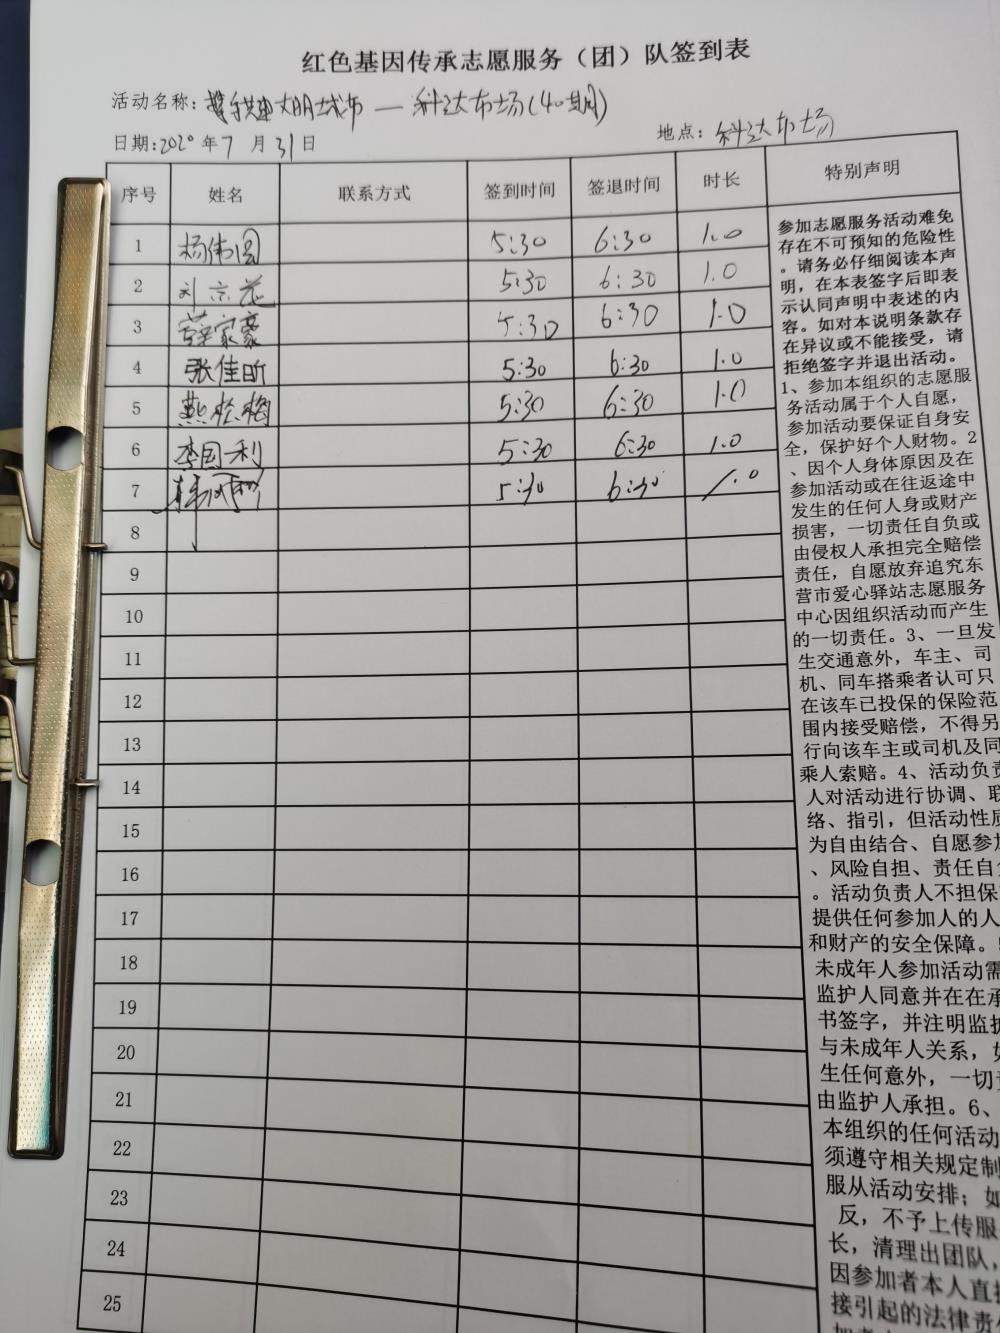 红色基因传承志愿服务（团）队签到表
活动名称：携手共建文明城市 — 科达市场(40期)
日期:2020年7月31日 地点：科达市场
序号 姓名 联系方式 签到时间 签退时间 时长 特别声明
1 杨伟国 5:30 6:30 1.0
2 刘京花 5:30 6:30 1.0
3 薛家豪 5:30 6:30 1.0
4 张佳昕 5:30 6:30 1.0
5 燕松梅 5:30 6:30 1.0
6 李国利 5:30 6:30 1.0
7 5:30 6:30 1.0
8
9
10
11
12
13
14
15
16
17
18
19
20
21
22
23
24
25
参加志愿服务活动难免
存在不可预知的危险性
。请务必仔细阅读本声
明，在本表签字后即表
示认同声明中表述的内
容。如对本说明条款存
在异议或不能接受，请
拒绝签字并退出活动。
1、参加本组织的志愿服
务活动属于个人自愿，
参加活动要保证自身安
全，保护好个人财物。2
、因个人身体原因及在
参加活动或在往返途中
发生的任何人身或财产
损害，一切责任自负或
由侵权人承担完全赔偿
责任，自愿放弃追究东
营市爱心驿站志愿服务
中心因组织活动而产生
的一切责任。3、一旦发
生交通意外，车主、司
机、同车搭乘者认可只
在该车已投保的保险范
围内接受赔偿，不得另
行向该车主或司机及同
乘人索赔。4、活动负责
人对活动进行协调、联
络、指引，但活动性质
为自由结合、自愿参加
、风险自担、责任自负
。活动负责人不担保
提供任何参加人的人
和财产的安全保障。
未成年人参加活动需
监护人同意并在在承
书签字，并注明监护
与未成年人关系，如
生任何意外，一切责
由监护人承担。6、
本组织的任何活动
须遵守相关规定制
服从活动安排；如
反，不予上传服
长，清理出团队，
因参加者本人直接
接引起的法律责任